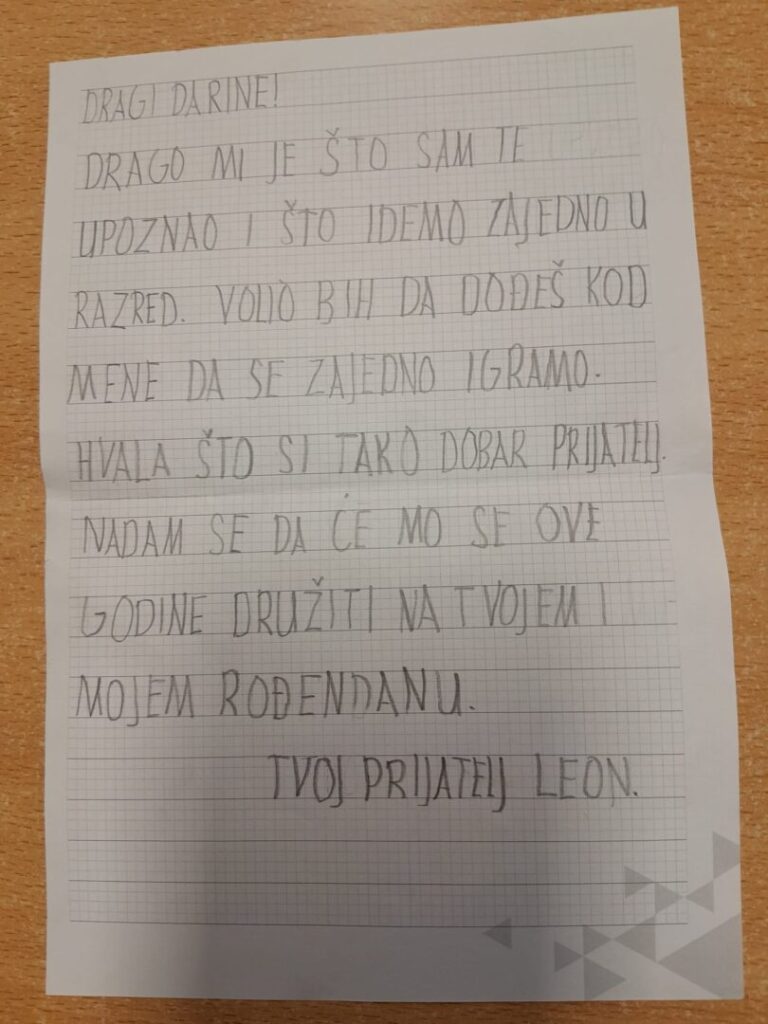 DRAGI DARINE!
DRAGO MI JE ŠTO SAM TE
UPOZNAO I ŠTO IDEMO ZAJEDNO U
RAZRED. VOLIO BIH DA DOĐEŠ KOD
MENE DA SE ZAJEDNO IGRAMO.
HVALA ŠTO SI TAKO DOBAR PRIJATELJ.
NADAM SE DA ĆE MO SE OVE
GODINE DRUŽITI NA TVOJEM I
MOJEM ROĐENDANU.
TVOJ PRIJATELJ LEON.